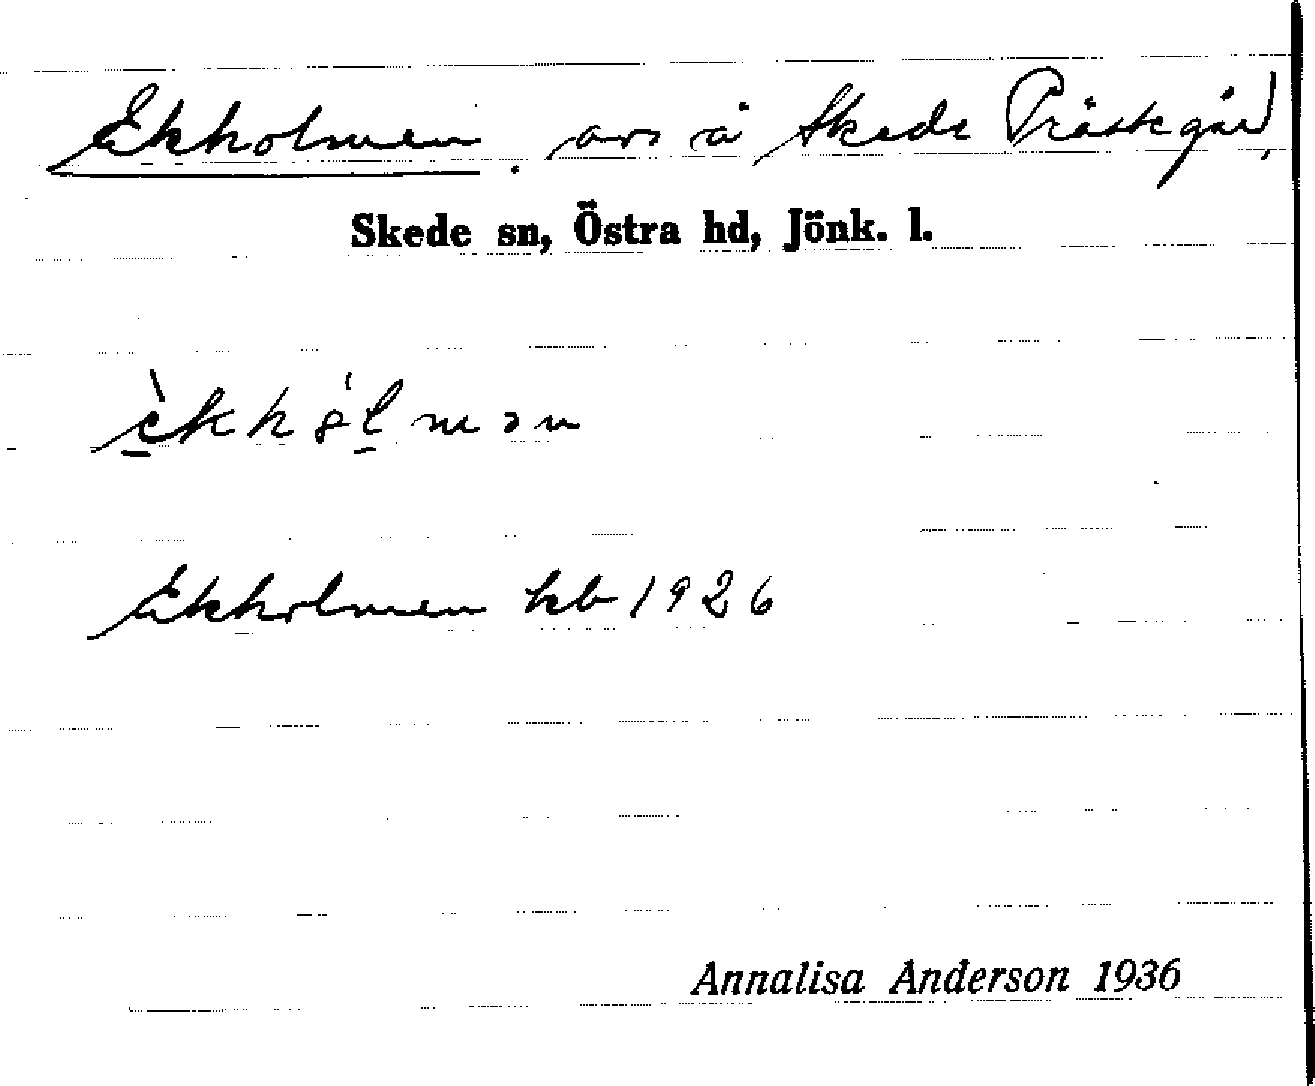 Ekholmen. avs å Skede Prästgård,
Skede sn, Östra hd, Jönk. l.
Ekholmen kb 1926
Annalisa Anderson 1936